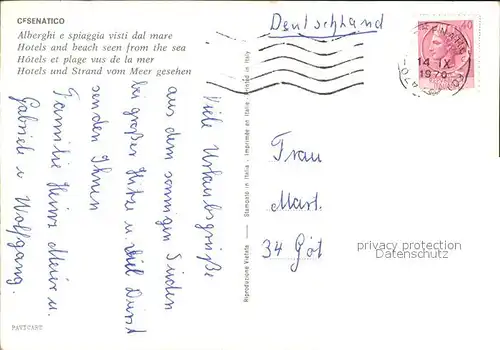 CESENATICO
Alberghi e spiaggia visti dal mare
Hotels and beach seen from the sea
Hôtels et plage vus de la mer
Hotels und Strand vom Meer gesehen
Deutschland
40
14 IX
1970
Viele Urlaubsgrüße
aus dem sonnigen Süden
bei großer Hitze u. viel Durst
senden Ihnen
Familie Heinz Meier u.
Gabriele u Wolfgang.
Riproduzione Vietata — Stampato in Italia - Imprimée en Italie - Printed in Italy
Frau
Mart.
34 Göt
privacy protection
Datenschutz
PAVICART